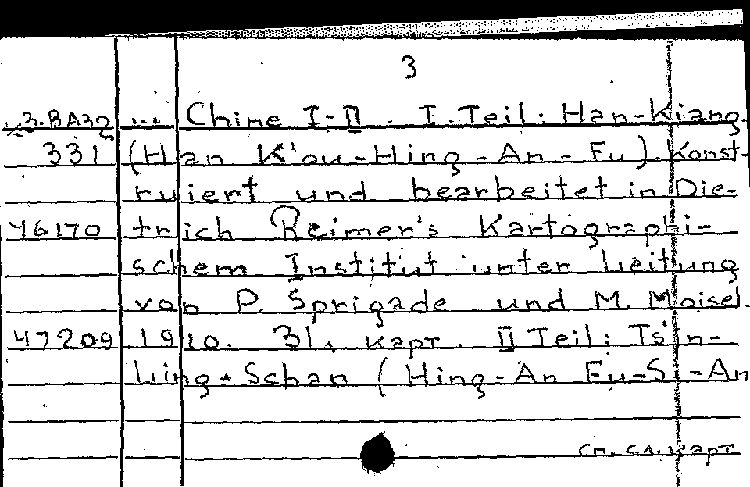 3
3.BA32 ... Chine I-II. I. Teil: Han-Kiang
331 (Han K'ou-Hing-An-Fu). Konst-
ruiert und bearbeitet in Die-
46170 trich Reimer's Kartographi-
schem Institut unter Leitung
von P. Sprigade und M. Moisel.
47209 1910. 31, карт. II Teil: Tsin-
Ling-Schan (Hing-An Fu-Si-An
См. сл. карт